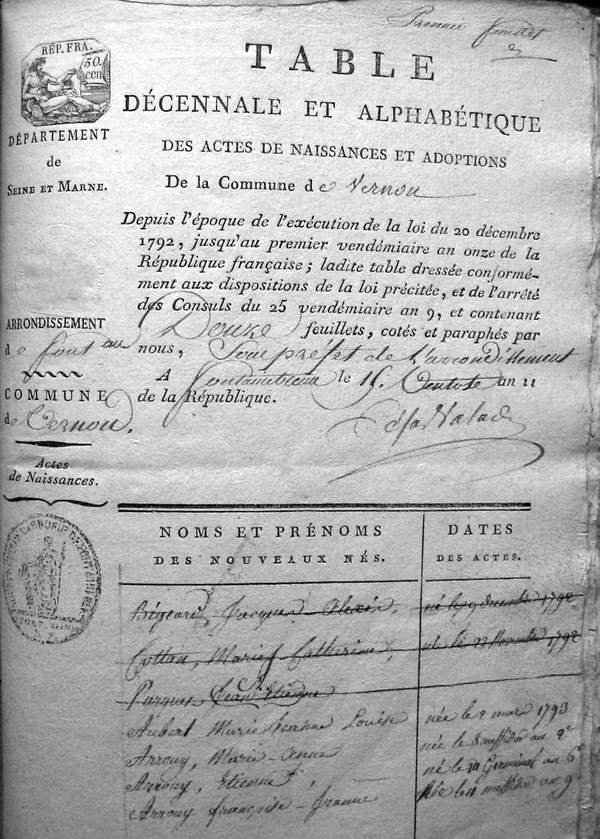 Premier feuillet
RÉP. FRA.
50.
cen
TABLE
DÉCENNALE ET ALPHABÉTIQUE
DES ACTES DE NAISSANCES ET ADOPTIONS
De la Commune de Vernou
DÉPARTEMENT
de
SEINE ET MARNE.
Depuis l'époque de l'exécution de la loi du 20 décembre
1792, jusqu'au premier vendémiaire an onze de la
République française; ladite table dressée conformé-
ment aux dispositions de la loi précitée, et de l'arrêté
des Consuls du 25 vendémiaire an 9, et contenant
Douze feuillets, cotés et paraphés par
nous, Souspréfet de l'arrondissement
A fontainebleau le 15 Ventose an 11
de la République.
ARRONDISSEMENT
de font au
COMMUNE
de Vernou.
Actes
de Naissances.
NOMS ET PRÉNOMS
DES NOUVEAUX NÉS.
DATES
DES ACTES.
Bigeard, Jacques Alexis, né le 9 decembre 1792
Cotton, Marie Catherine, née le 23 Novembre 1792
Jean Etienne
Aubert Marie Jeanne Louise née le 2 mars 1793
Arrouy, Marie-anne née le 8 messidor an 2e
Arrouy, Etienne, né le 30 Germinal an 6e
Arrouy françoise-jeanne née le 11 messidor an 9e